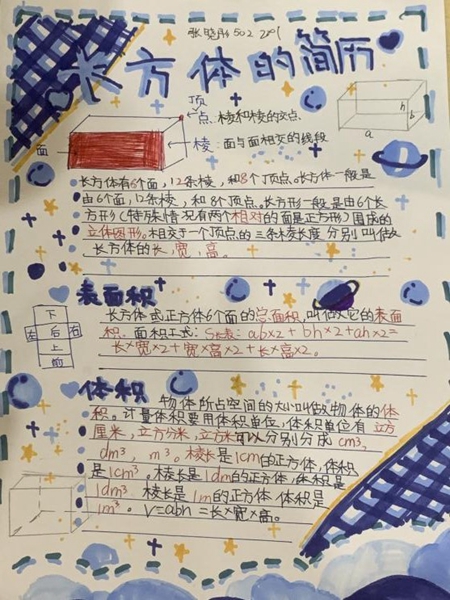 502
长方体的简历
顶
点：棱和棱的交点
棱：面与面相交的线段
面
h
b
a
长方体有6个面，12条棱，和8个顶点。长方体一般是
由6个面，12条棱，和8个顶点。长方形一般是由6个长
方形（特殊情况有两个相对的面是正方形）围成的
立体图形。相交于一个顶点的三条棱长度分别叫做
长方体的长，宽，高。
表面积
下
左 后 右
上
前
长方体或正方体6个面的总面积，叫做它的表面
积。面积工式：S长表：ab×2+bh×2+ah×2=
长×宽×2+宽×高×2+长×高×2。
体积
物体所占空间的大小叫做物体的体
积。计量体积要用体积单位，体积单位有立方
厘米，立方分米，立方米可以分别分成cm³，
dm³，m³。棱长是1cm的正方体，体积
是1cm³。棱长是1dm的正方体，体积是
1dm³ 棱长是1m的正方体 体积是
1m³。V=abh=长×宽×高。